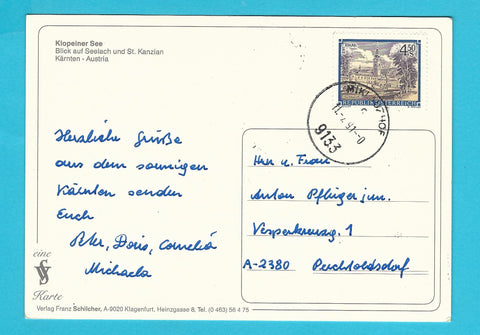 Klopeiner See
Blick auf Seelach und St. Kanzian
Kärnten - Austria
4.50
REPUBLIK ÖSTERREICH
9133
Herzliche Grüße
aus dem sonnigen
Kärnten senden
Euch
Peter, Doris, Cornelia
Michaela
Herr u. Frau
Anton Pflüger jun.
Vesperkreuzg. 1
A-2380 Perchtoldsdorf
eine
Karte
Verlag Franz Schilcher, A-9020 Klagenfurt, Heinzgasse 8, Tel. (0 463) 56 4 75